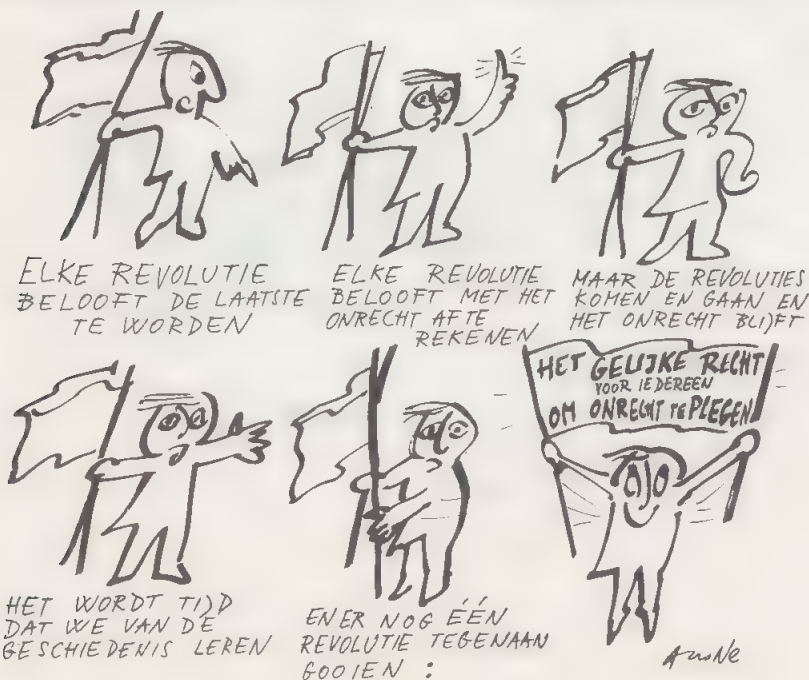 ELKE REVOLUTIE
BELOOFT DE LAATSTE
TE WORDEN
ELKE REVOLUTIE
BELOOFT MET HET
ONRECHT AF TE
REKENEN
MAAR DE REVOLUTIES
KOMEN EN GAAN EN
HET ONRECHT BLIJFT
HET WORDT TIJD
DAT WE VAN DE
GESCHIEDENIS LEREN
EN ER NOG ÉÉN
REVOLUTIE TEGENAAN
GOOIEN :
HET GELIJKE RECHT
VOOR IEDEREEN
OM ONRECHT TE PLEGEN